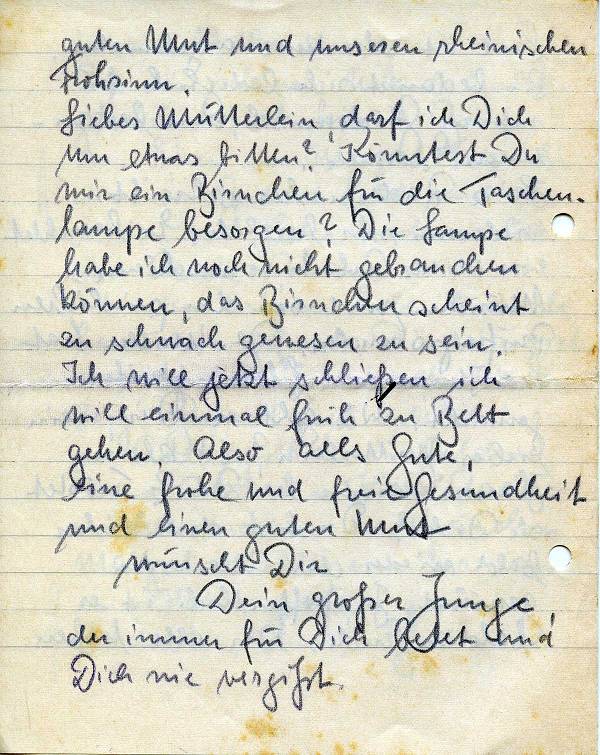 guten Mut und unseren rheinischen
Frohsinn.
Liebes Mütterlein, darf ich Dich
um etwas bitten? Könntest Du
mir ein Birnchen für die Taschen-
lampe besorgen? Die Lampe
habe ich noch nicht gebrauchen
können, das Birnchen scheint
zu schwach gewesen zu sein.
Ich will jetzt schließen, ich
will einmal früh zu Bett
gehen. Also alles Gute,
eine frohe und freie Gesundheit
und einen guten Mut
wünscht Dir
Dein großer Junge,
der immer für Dich betet und
Dich nie vergißt.